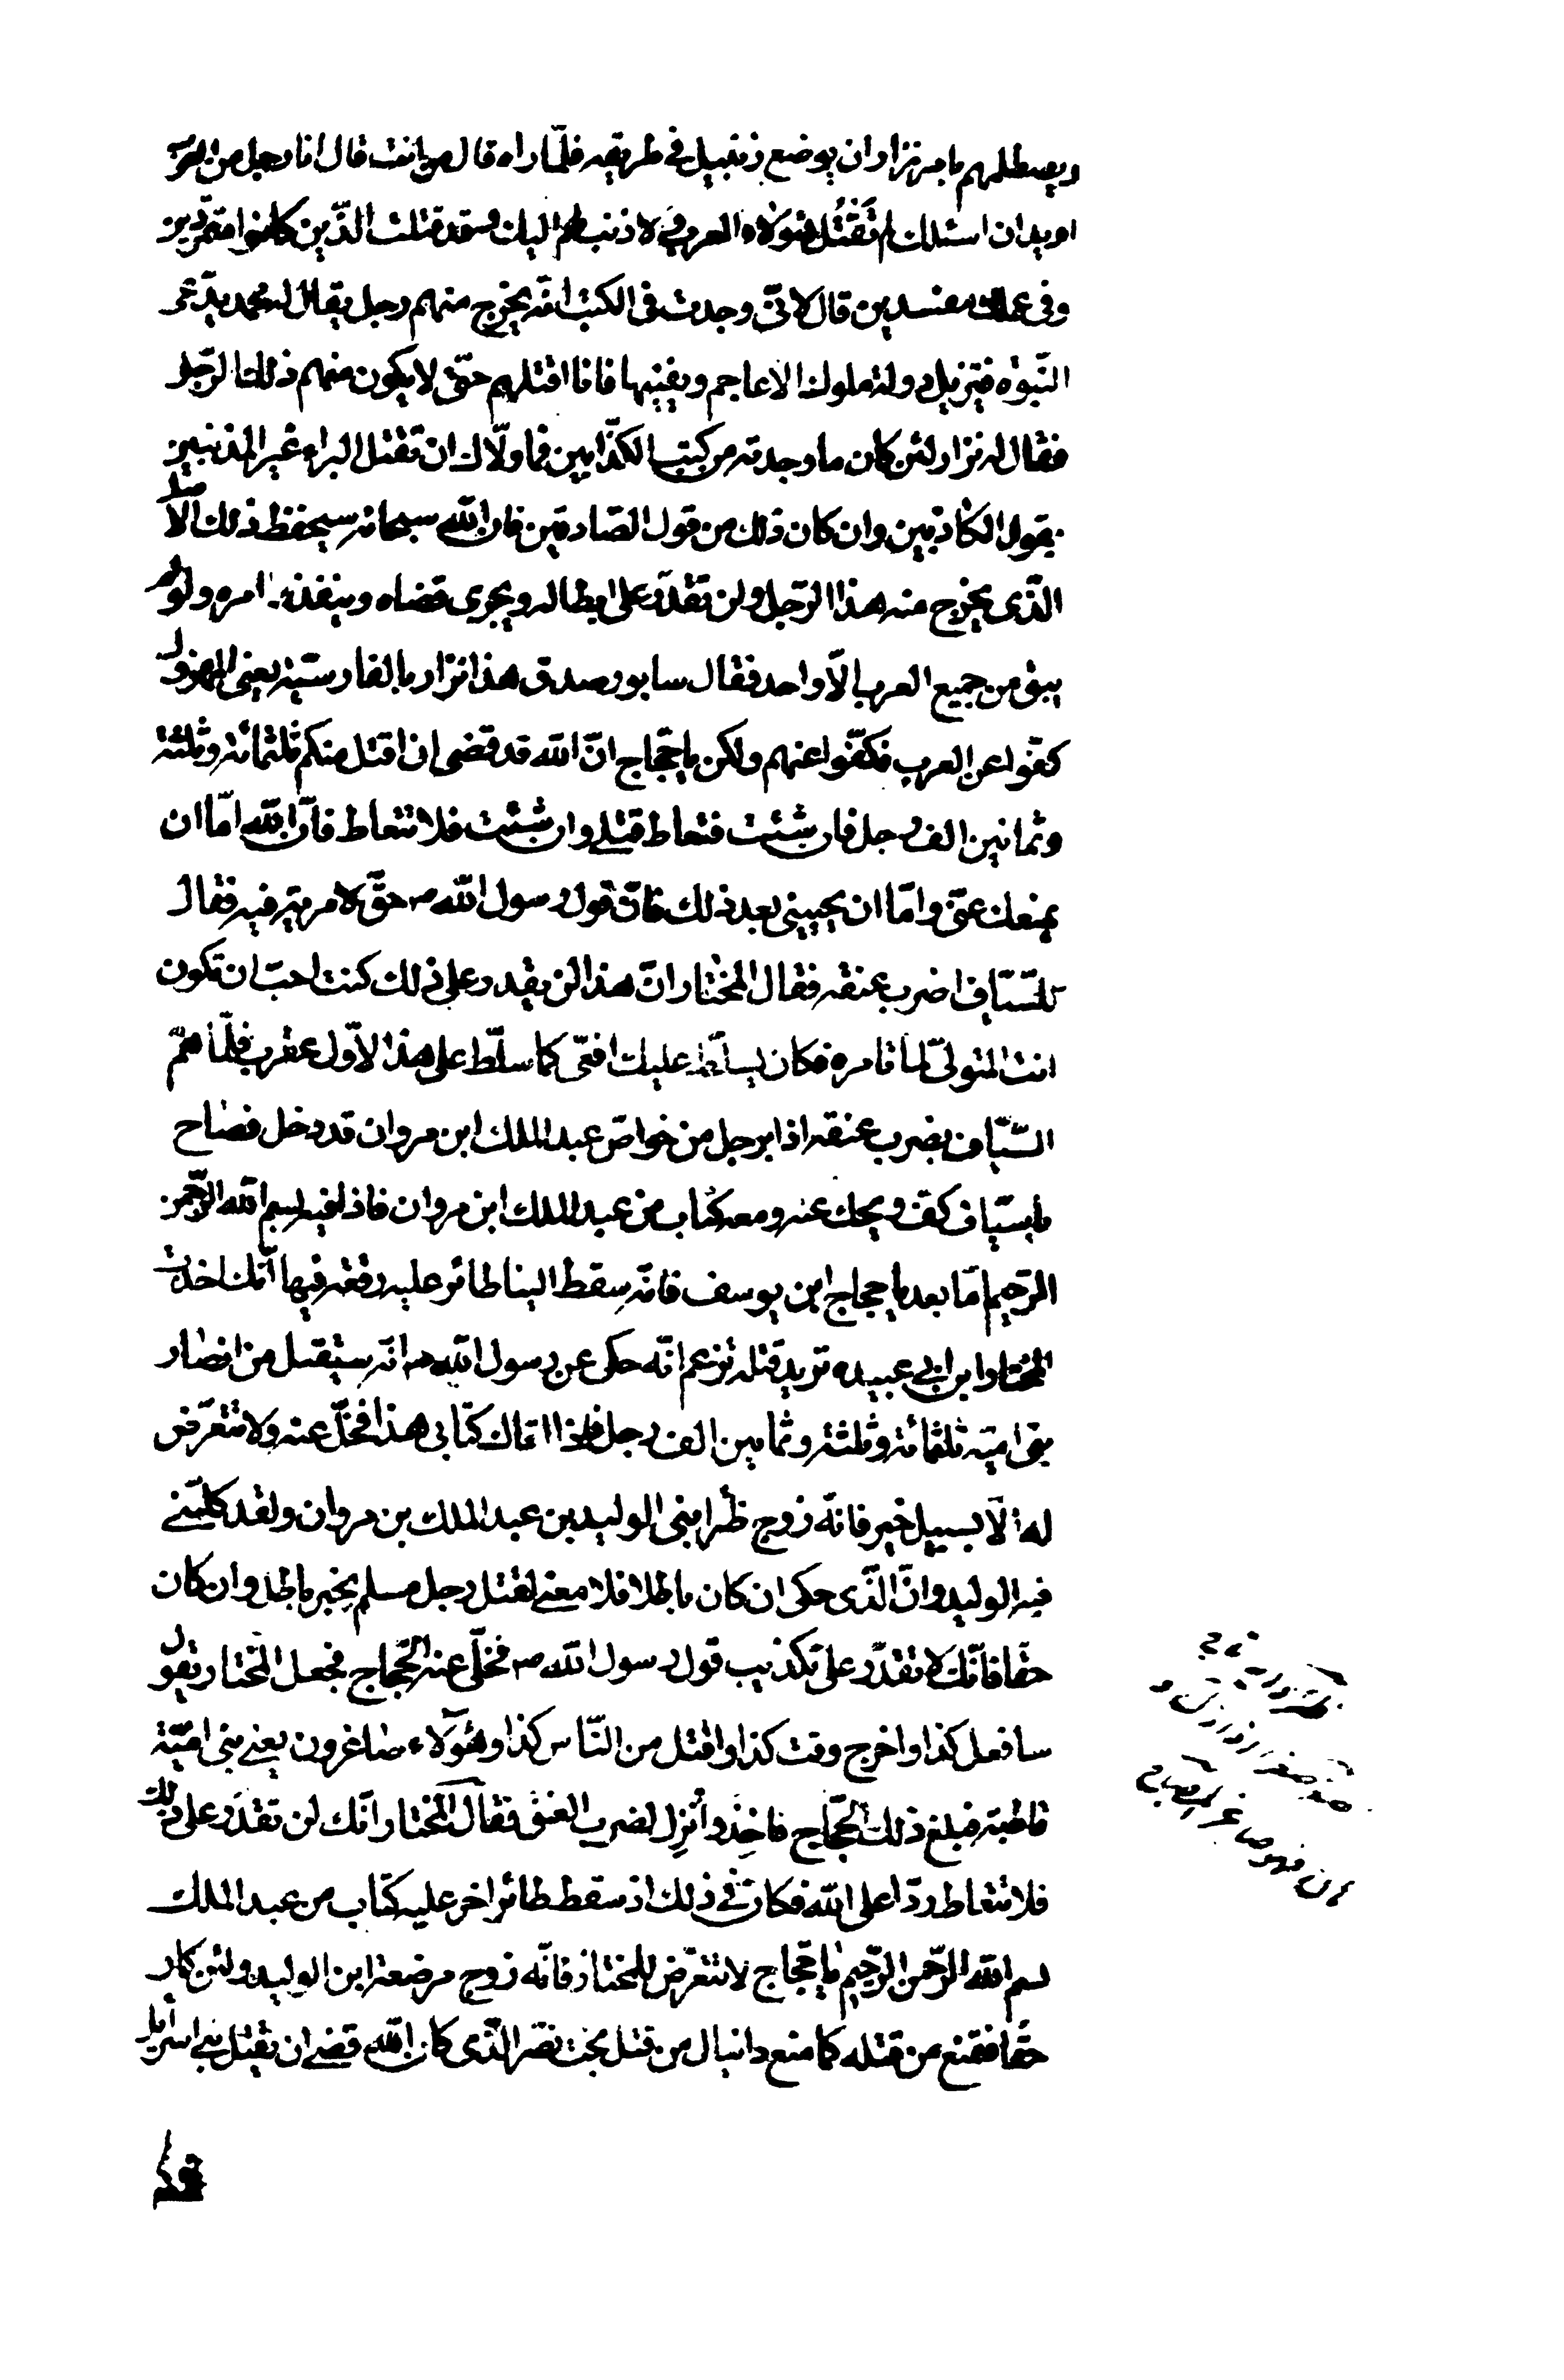 ويصطلمهم فامر نزار ان يوضع زنبيل في طريقه فلمّا راه قال من انت قال انا رجل من العرب
اريد ان اسئلك لم تَقْتُل هؤلاء العرب و لا ذنب لهم اليك وقد قتلت الّذين كانوا متمرّدين
وفى عملك مفسدين قال لانّى وجدت فى الكتب انّه يخرج منهم رجل يقال له محمد يدّعى
النّبوّه فيزيل دولة ملوك الاعاجم ويفنيها فانا اقتلهم حتّى لا يكون منهم ذلك الرّجل
فقال له نزار لئن كان ما وجدته من كتب الكذّابين فما ولّاك ان تقتل البراء غير المذنبين
بقول الكاذبين وان كان ذلك من قول الصّادقين فان اللّه سبحانه سيحفظ ذلك الاصل
الّذى يخرج منه هذا الرّجل ولن تقدر على ابطاله ويجرى قضاه وينفذ امره ولو لم
يبق من جميع العرب الّا واحد فقال سابور صدق هذا نزار بالفارسيّة يعنى المهزول
كفّوا عن العرب فكفّوا عنهم ولكن يا حجّاج انّ اللّه قد قضى ان اقتل منكم ثلثمائة وثلثة
وثمانين الف رجل فان شئت فتعاط قتلى وان شئت فلا تتعاط فانّ اللّه امّا ان
يمنعك عنّى وامّا ان يحيينى بعد ذلك فانّ قول رسول اللّه ص حقّ لا مرية فيه فقال
للسّيّاف اضرب عنقه فقال المختار انّ هذا لن يقدر على ذلك كنت احبّ ان تكون
انت المتولّى لما تامره فكان يسلّط عليك افعى كما سلّط على هذا الاوّل عقرب فلمّا همّ
السّيّاف بضرب عنقه اذا برجل من خواصّ عبد الملك ابن مروان قد دخل فصاح
يا سيّاف كفّ ويحك عنه ومعه كتاب من عبد الملك ابن مروان فاذا فيه بسم اللّه الرّحمن
الرّحيم امّا بعد يا حجاج ابن يوسف فانّه سقط الينا طائر عليه رقعة فيها انّك اخذت
المختار ابن ابى عبيده تريد قتله تزعم انّه حكى عن رسول اللّه ص انّه سيقتل من انصار
بنى اميّه ثلثمائة وثلثة وثمانين الف رجل فاذا اتاك كتابى هذا فخلّ عنه ولا تتعرّض
له الّا بسبيل خير فانّه زوج ظئر ابنى الوليد بن عبد الملك بن مروان ولقد كلّمنى
فيه الوليد وانّ الّذى حكى ان كان باطلا فلا معنى لقتل رجل مسلم بخبر باطل وان كان
حقّا فانّك لا تقدر على تكذيب قول رسول اللّه ص فخلّى عنه الحجّاج فجعل المختار يقول
سافعل كذا واخرج وقت كذا واقتل من النّاس كذا وهؤلاء صاغرون يعنى بنى اميّة
قاطبة فبلغ ذلك الحجّاج فاخذ و أنزل لضرب العنق فقال المختار انّك لن تقدر على ذلك
فلا تتعاط ردّا على اللّه فكان فى ذلك اذ سقط طائر اخر عليه كتاب من عبد الملك
بسم اللّه الرّحمن الرّحيم يا حجّاج لا تتعرّض للمختار فانّه زوج مرضعة ابن الوليد ولئن كان
حقّا فتمنع من قتله كما منع دانيال من قتل بخت نصّر الّذى كان اللّه قضى ان يقتل بنى اسرائيل